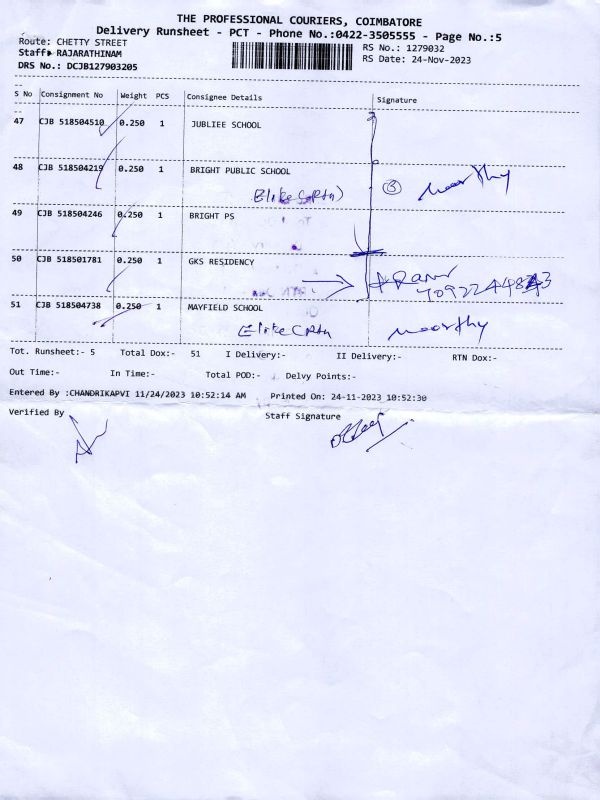 THE PROFESSIONAL COURIERS, COIMBATORE
Delivery Runsheet - PCT - Phone No.:0422-3505555 - Page No.:5
Route: CHETTY STREET
RS No.: 1279032
Staff: RAJARATHINAM
RS Date: 24-Nov-2023
DRS No.: DCJB127903205
S No Consignment No Weight PCS Consignee Details Signature
47 CJB 518504510 0.250 1 JUBLIEE SCHOOL
48 CJB 518504219 0.250 1 BRIGHT PUBLIC SCHOOL
③ Moorthy
49 CJB 518504246 0.250 1 BRIGHT PS
50 CJB 518501781 0.250 1 GKS RESIDENCY
51 CJB 518504738 0.250 1 MAYFIELD SCHOOL
Moorthy
Tot. Runsheet:- 5 Total Dox:- 51 I Delivery:- II Delivery:- RTN Dox:-
Out Time:- In Time:- Total POD:- Delvy Points:-
Entered By :CHANDRIKAPVI 11/24/2023 10:52:14 AM Printed On: 24-11-2023 10:52:30
Verified By Staff Signature